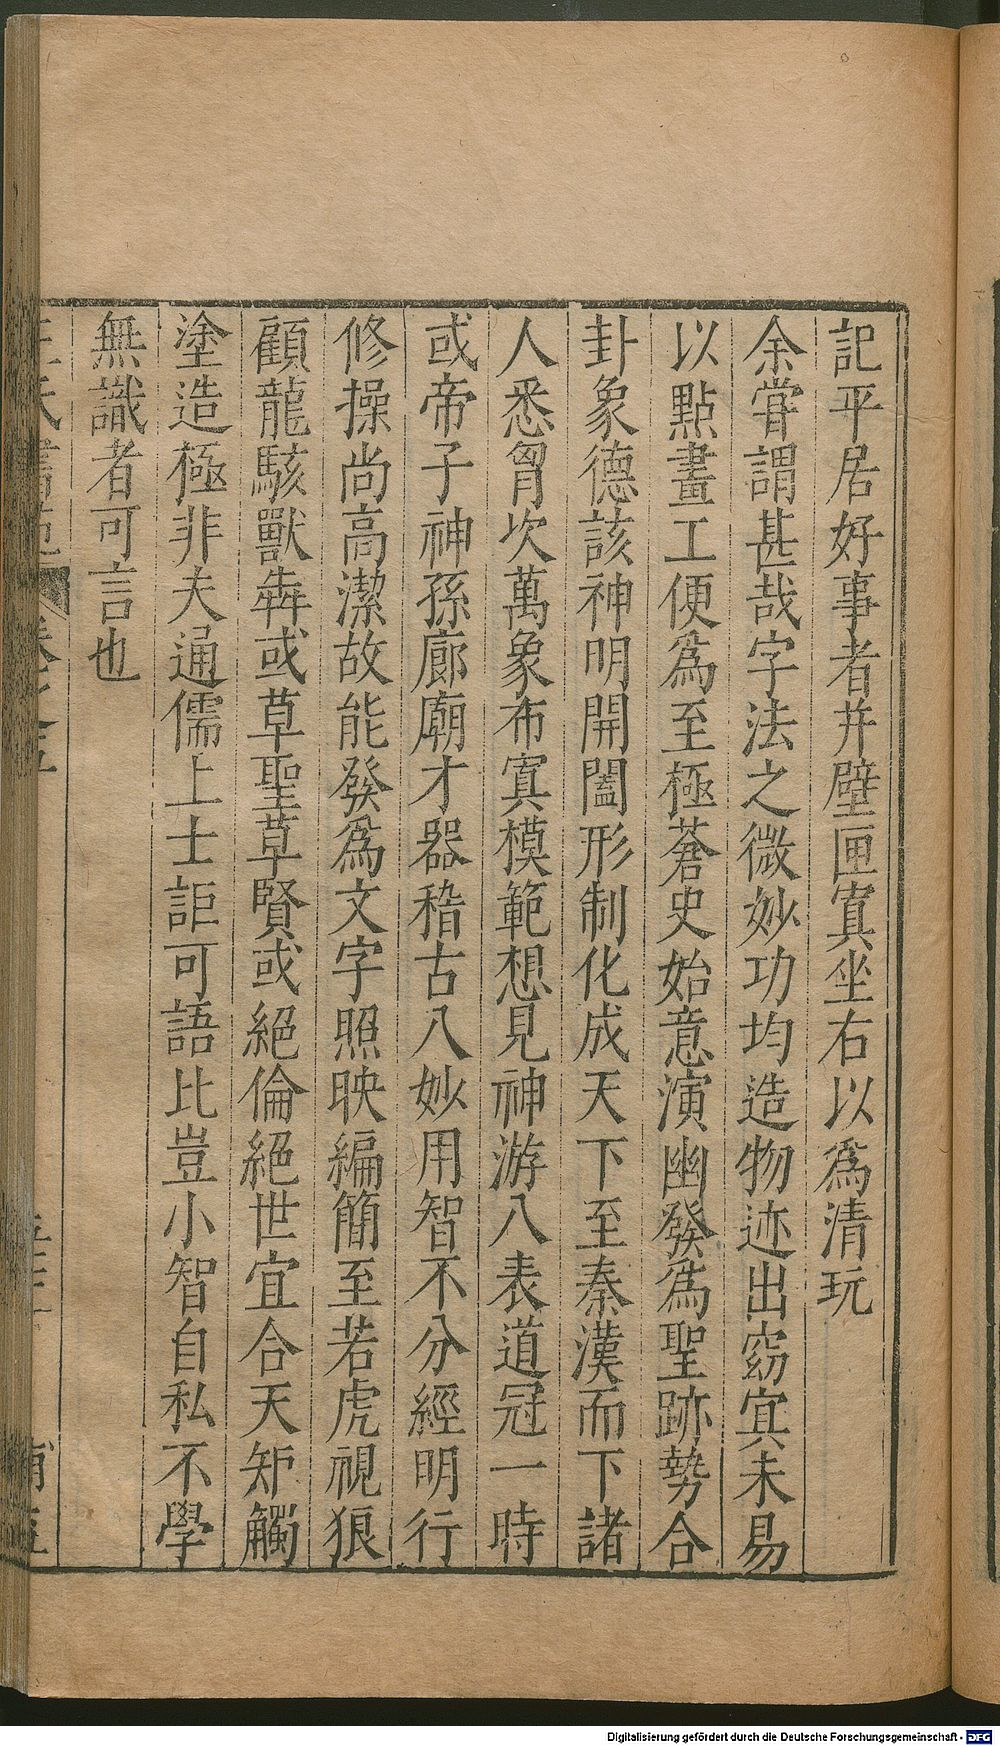 記平居好事者并壁匣寘坐右以爲清玩
余甞謂甚哉字法之微妙功均造物迹出窈㝠未易
以點畫工便爲至極蒼史始意演幽發爲聖跡勢合
卦象德該神明開闔形制化成天下至秦漢而下諸
人悉胷次萬象布寘模範想見神游八表道冠一時
或帝子神孫廊廟才器稽古入妙用智不分經明行
修操尚高潔故能發爲文字照映編簡至若虎視狼
顧龍駭獸犇或草聖草賢或絕倫絕世宜合天矩觸
塗造極非夫通儒上士詎可語比豈小智自私不學
無識者可言也
Digitalisierung gefördert durch die Deutsche Forschungsgemeinschaft - DFG